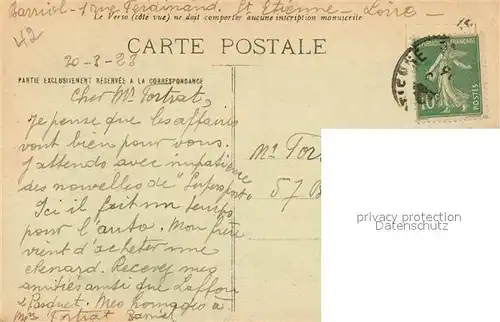 Barriol - 1 rue Ferdinand. St Etienne - Loire -
Le Verso (côté vue) ne doit comporter aucune inscription manuscrite
42
CARTE POSTALE
20-3-23
PARTIE EXCLUSIVEMENT RÉSERVÉE A LA CORRESPONDANCE
Cher Mr Tortrat,
Je pense que les affaires
vont bien pour vous.
J'attends avec impatience
des nouvelles de "
Ici il fait un temps
pour l'auto. Mon frère
vient d'acheter une
chenard. Recevez mes
amitiés ainsi que Laffon
& Pasquet. Mes homages à
Mme Tortrat Daniel
Mr Tor
57 B
FRANÇAISE
POSTES
10
privacy protection
Datenschutz